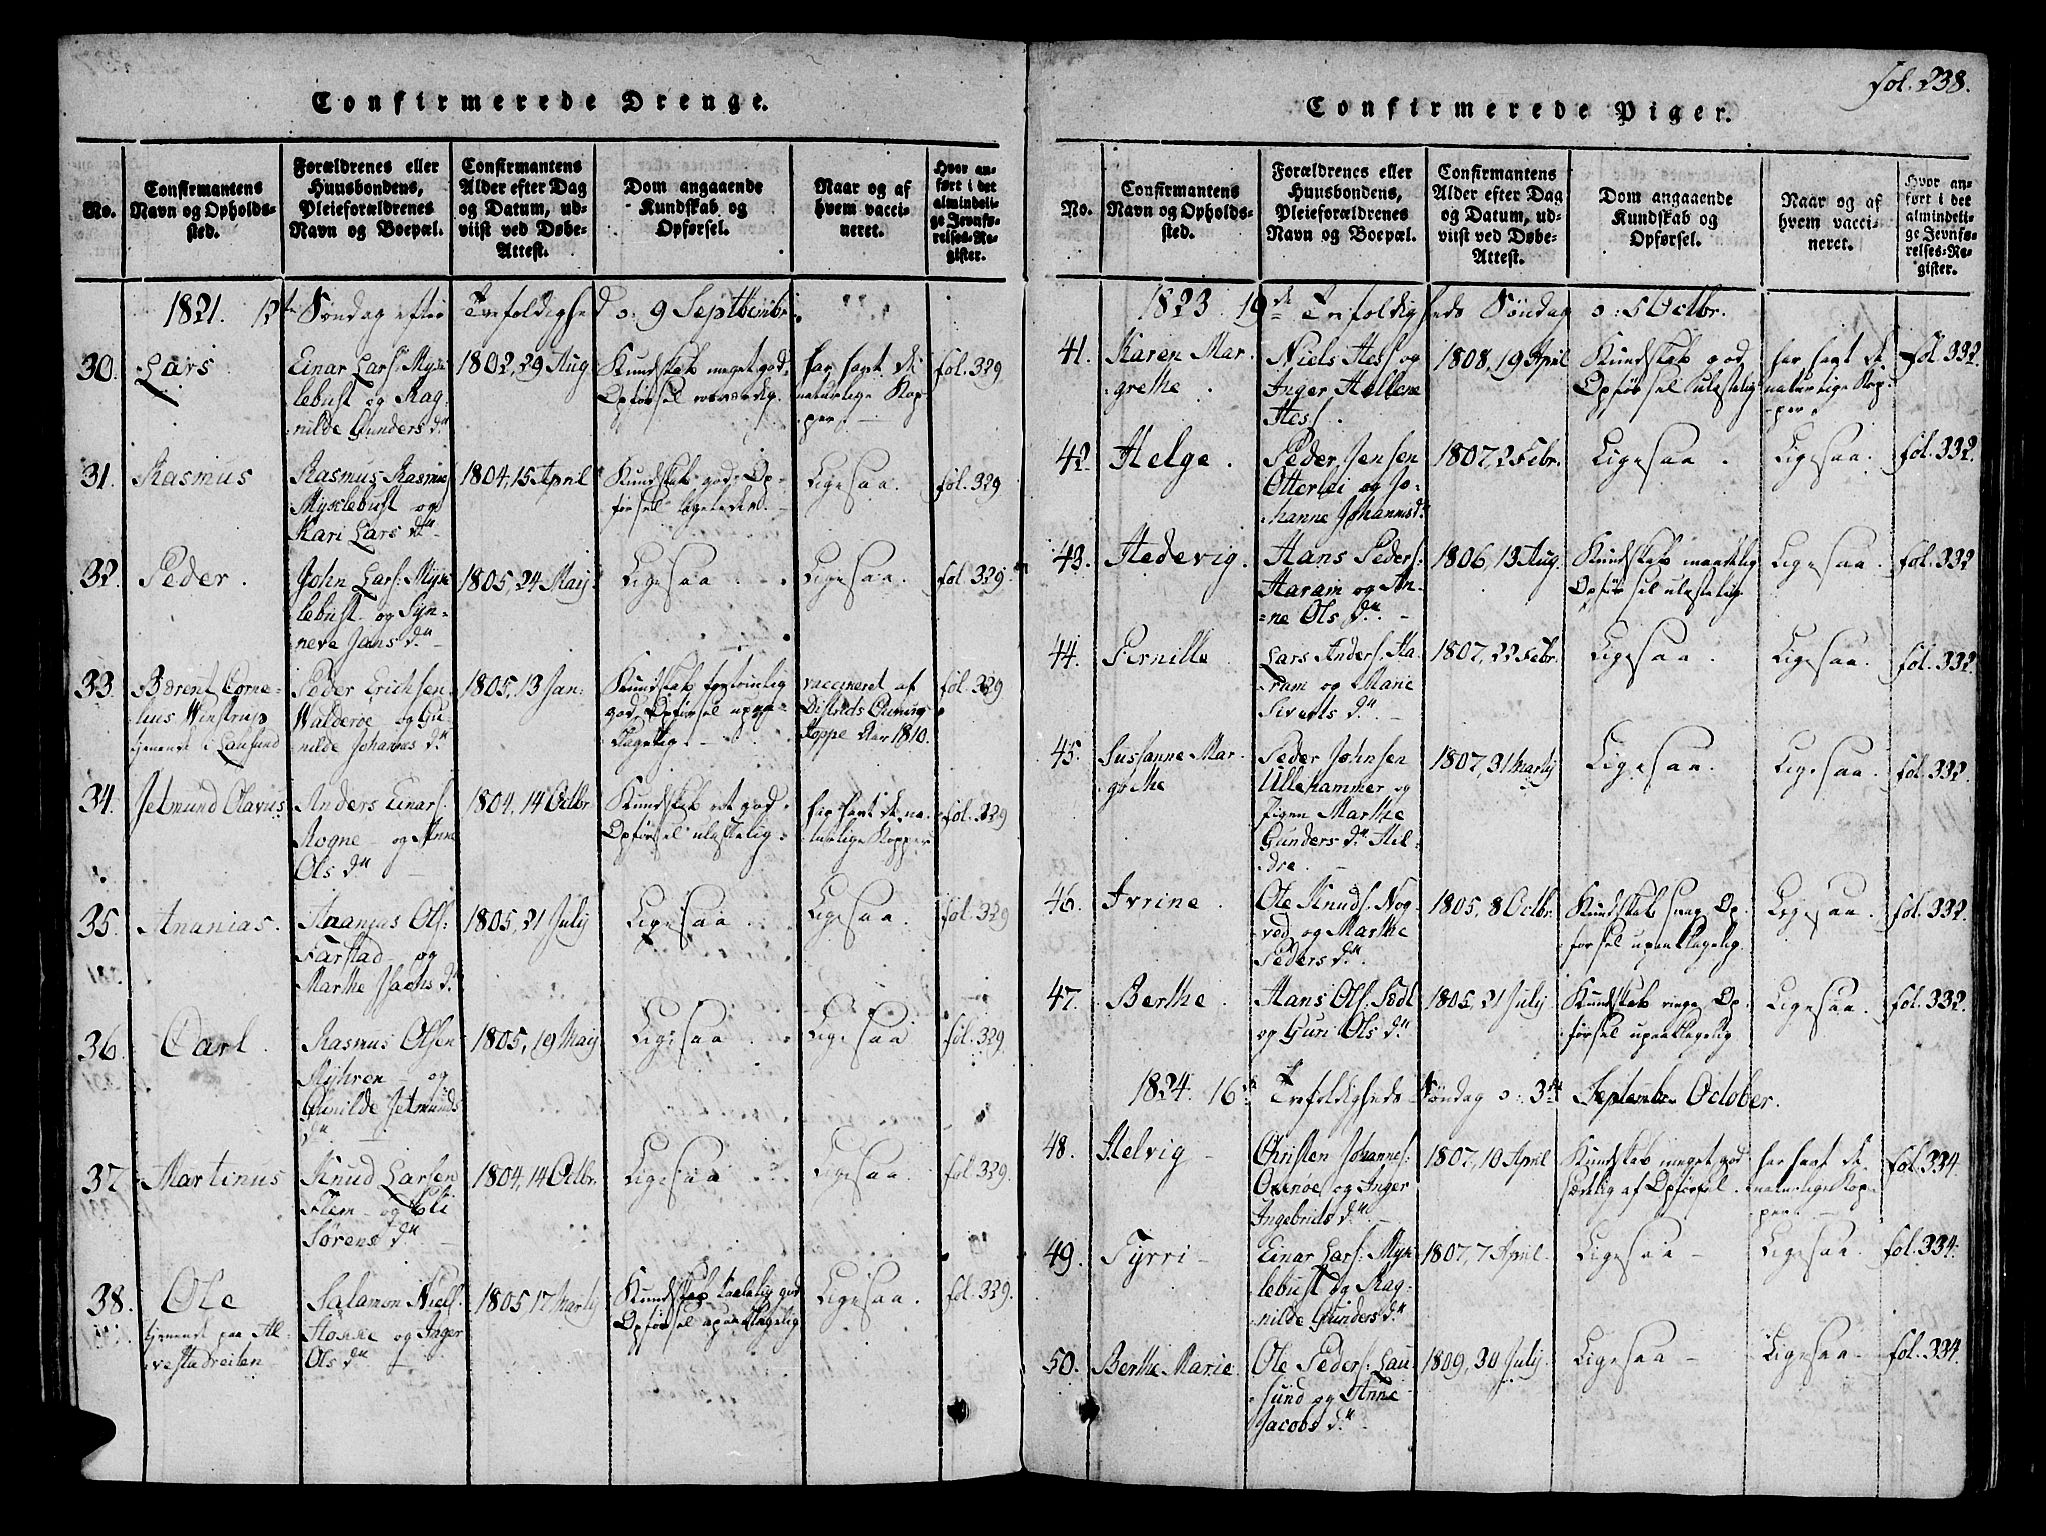 Confirmerede Drenge.
No.
Confirmantens
Navn og Opholds-
sted.
Forældrenes eller
Huusbondens,
Pleieforældrenes
Navn og Boepæl.
Confirmantens
Alder efter Dag
og Datum, ud-
viist ved Døbe-
Attest.
Dom angaaende
Kundskab og
Opførsel.
Naar og af
hvem vacci-
neret.
Hvor an-
ført i det
almindeli-
ge Jevnfø-
relses-Re-
gister.
1821. 12te Søndag efter Trefoldighed o: 9 Septbembr.
30. Lars
Einar Lars: Myk
lebust og Rag
nilde Gunders dr
1802, 29 Aug
Kundskab meget god,
Opførsel
har havt de
naturlige Kop-
per.
fol. 329
31. Rasmus
Rasmus Rasmus
Mycklebust og
Kari Lars dr
1804, 15 April
Kundskab god, Op-
førsel ligeledes.
Ligesaa.
fol. 329
32. Peder.
John Lars: Myk
lebust og Syn-
neve Jans dr
1805, 24 Maij
Ligesaa
Ligesaa.
fol. 329.
33. Bærent Corne-
lius Winstrup
tjenende i Lausund
Peder Erichsen
Walderøe og Gu
nilde Johannes dr
1805, 13 Jan:
Kundskab temmelig
god, Opførsel upaa-
klagelig.
vaccineret af
Districts Chirurg
Hoppe 1810.
fol. 329
34. Jetmund Olavius
Anders Einars:
Rogne og Anne
Ols dr
1804, 14 Octbr
Kundskab ret god.
Opførsel ulastelig.
har havt de na-
turlige Kopper
fol. 329
35. Ananias.
Ananias Ols:
Farstad og
Marthe Isachs dr
1805, 21 July
Ligesaa
Ligesaa.
fol. 329
36. Carl.
Rasmus Olsen
Myhren og
Gunilde Jetmunds
dr
1805, 19 Maij
Ligesaa
Ligesaa
fol. 329.
37. Martinus
Knud Larsen
Flem og Eli
Sørens dr
1804, 14 Octbr.
Ligesaa
Ligesaa.
fol. 329.
38. Ole
tjenende paa Al-
vestadreiten
Salamon Niels:
Stokke og Inger
Ols dr
1805, 17 Martij
Kundskab taalelig god
Opførsel upaaklagelig
Ligesaa.
fol. 329.
fol. 238.
Confirmerede Piger.
No.
Confirmantens
Navn og Opholds-
sted.
Forældrenes eller
Huusbondens,
Pleieforældrenes
Navn og Boepæl.
Confirmantens
Alder efter Dag
og Datum, ud-
viist ved Døbe-
Attest.
Dom angaaende
Kundskab og
Opførsel.
Naar og af
hvem vacci-
neret.
Hvor an-
ført i det
almindeli-
ge Jevnfø-
relses-Re-
gister.
1823. 19de Trefoldigheds Søndag o: 5 Octbr.
41. Karen Mar-
grethe.
Niels Hess og
Inger Hellene
Hess.
1808, 19 April
Kundskab god,
Opførsel ulastelig
har havt de
naturlige Kop-
per.
fol. 332.
42. Helge.
Peder Jensen
Otterlei og Jo-
hanne Johannesdr
1807, 2 Febr.
Ligesaa.
Ligesaa.
fol. 332.
43. Hedevig.
Hans Peders:
Haram og An-
ne Ols dr
1806, 13 Aug.
Kundskab maadelig
Opførsel ulastelig
Ligesaa.
fol. 332
44. Pernille
Lars Anders: Ha-
ram og Marie
Siverts dr
1807, 22 Febr.
Ligesaa.
Ligesaa.
fol. 332.
45. Sussanne Mar-
grethe
Peder Johnsen
Ullehammer og
Pigen Marthe
Gunders dr Hil-
dre.
1807, 31 Martij
Ligesaa.
Ligesaa.
fol. 332.
46. Ivrine.
Ole Knuds: Nog-
ved og Marthe
Peders dr
1805, 8 Octbr.
Kundskab svag, Op-
førsel upaaklagelig.
Ligesaa.
fol. 332.
47. Berthe.
Hans Ols: Sødl
og Guri Ols dr
1805, 21 July
Kundskab ringe, Op-
førsel upaaklagelig
Ligesaa.
fol. 332.
1824. 16de Trefoldigheds Søndag o: 3die September October.
48. Helvig
Christen Johannes:
Oxenøe og Inger
Ingebrids dr
1807, 10 April
Kundskab meget god
Sædelig af Opførsel.
har havt de
naturlige Kop-
per.
fol. 334.
49. Tyrri
Einar Lars: Myk
lebust og Rag-
nilde Gunders dr
1807, 7 April.
Ligesaa
Ligesaa.
fol. 334.
50. Berthe Marie.
Ole Peders: Lau-
sund og Anne
Jacobs dr
1809, 30 July
Ligesaa
Ligesaa
fol. 334.